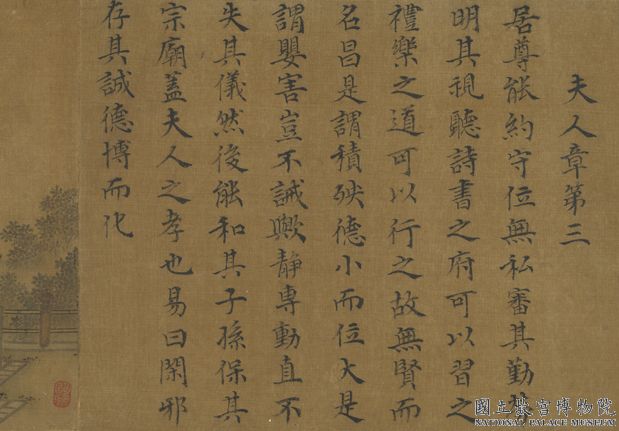 夫人章第三
居尊能約守位無私審其勤勞
明其視聽詩書之府可以習之
禮樂之道可以行之故無賢而
名昌是謂積殃德小而位大是
謂嬰害豈不誡歟靜專動直不
失其儀然後能和其子孫保其
宗廟蓋夫人之孝也易曰閑邪
存其誠德博而化
國立故宮博物院
NATIONAL PALACE MUSEUM